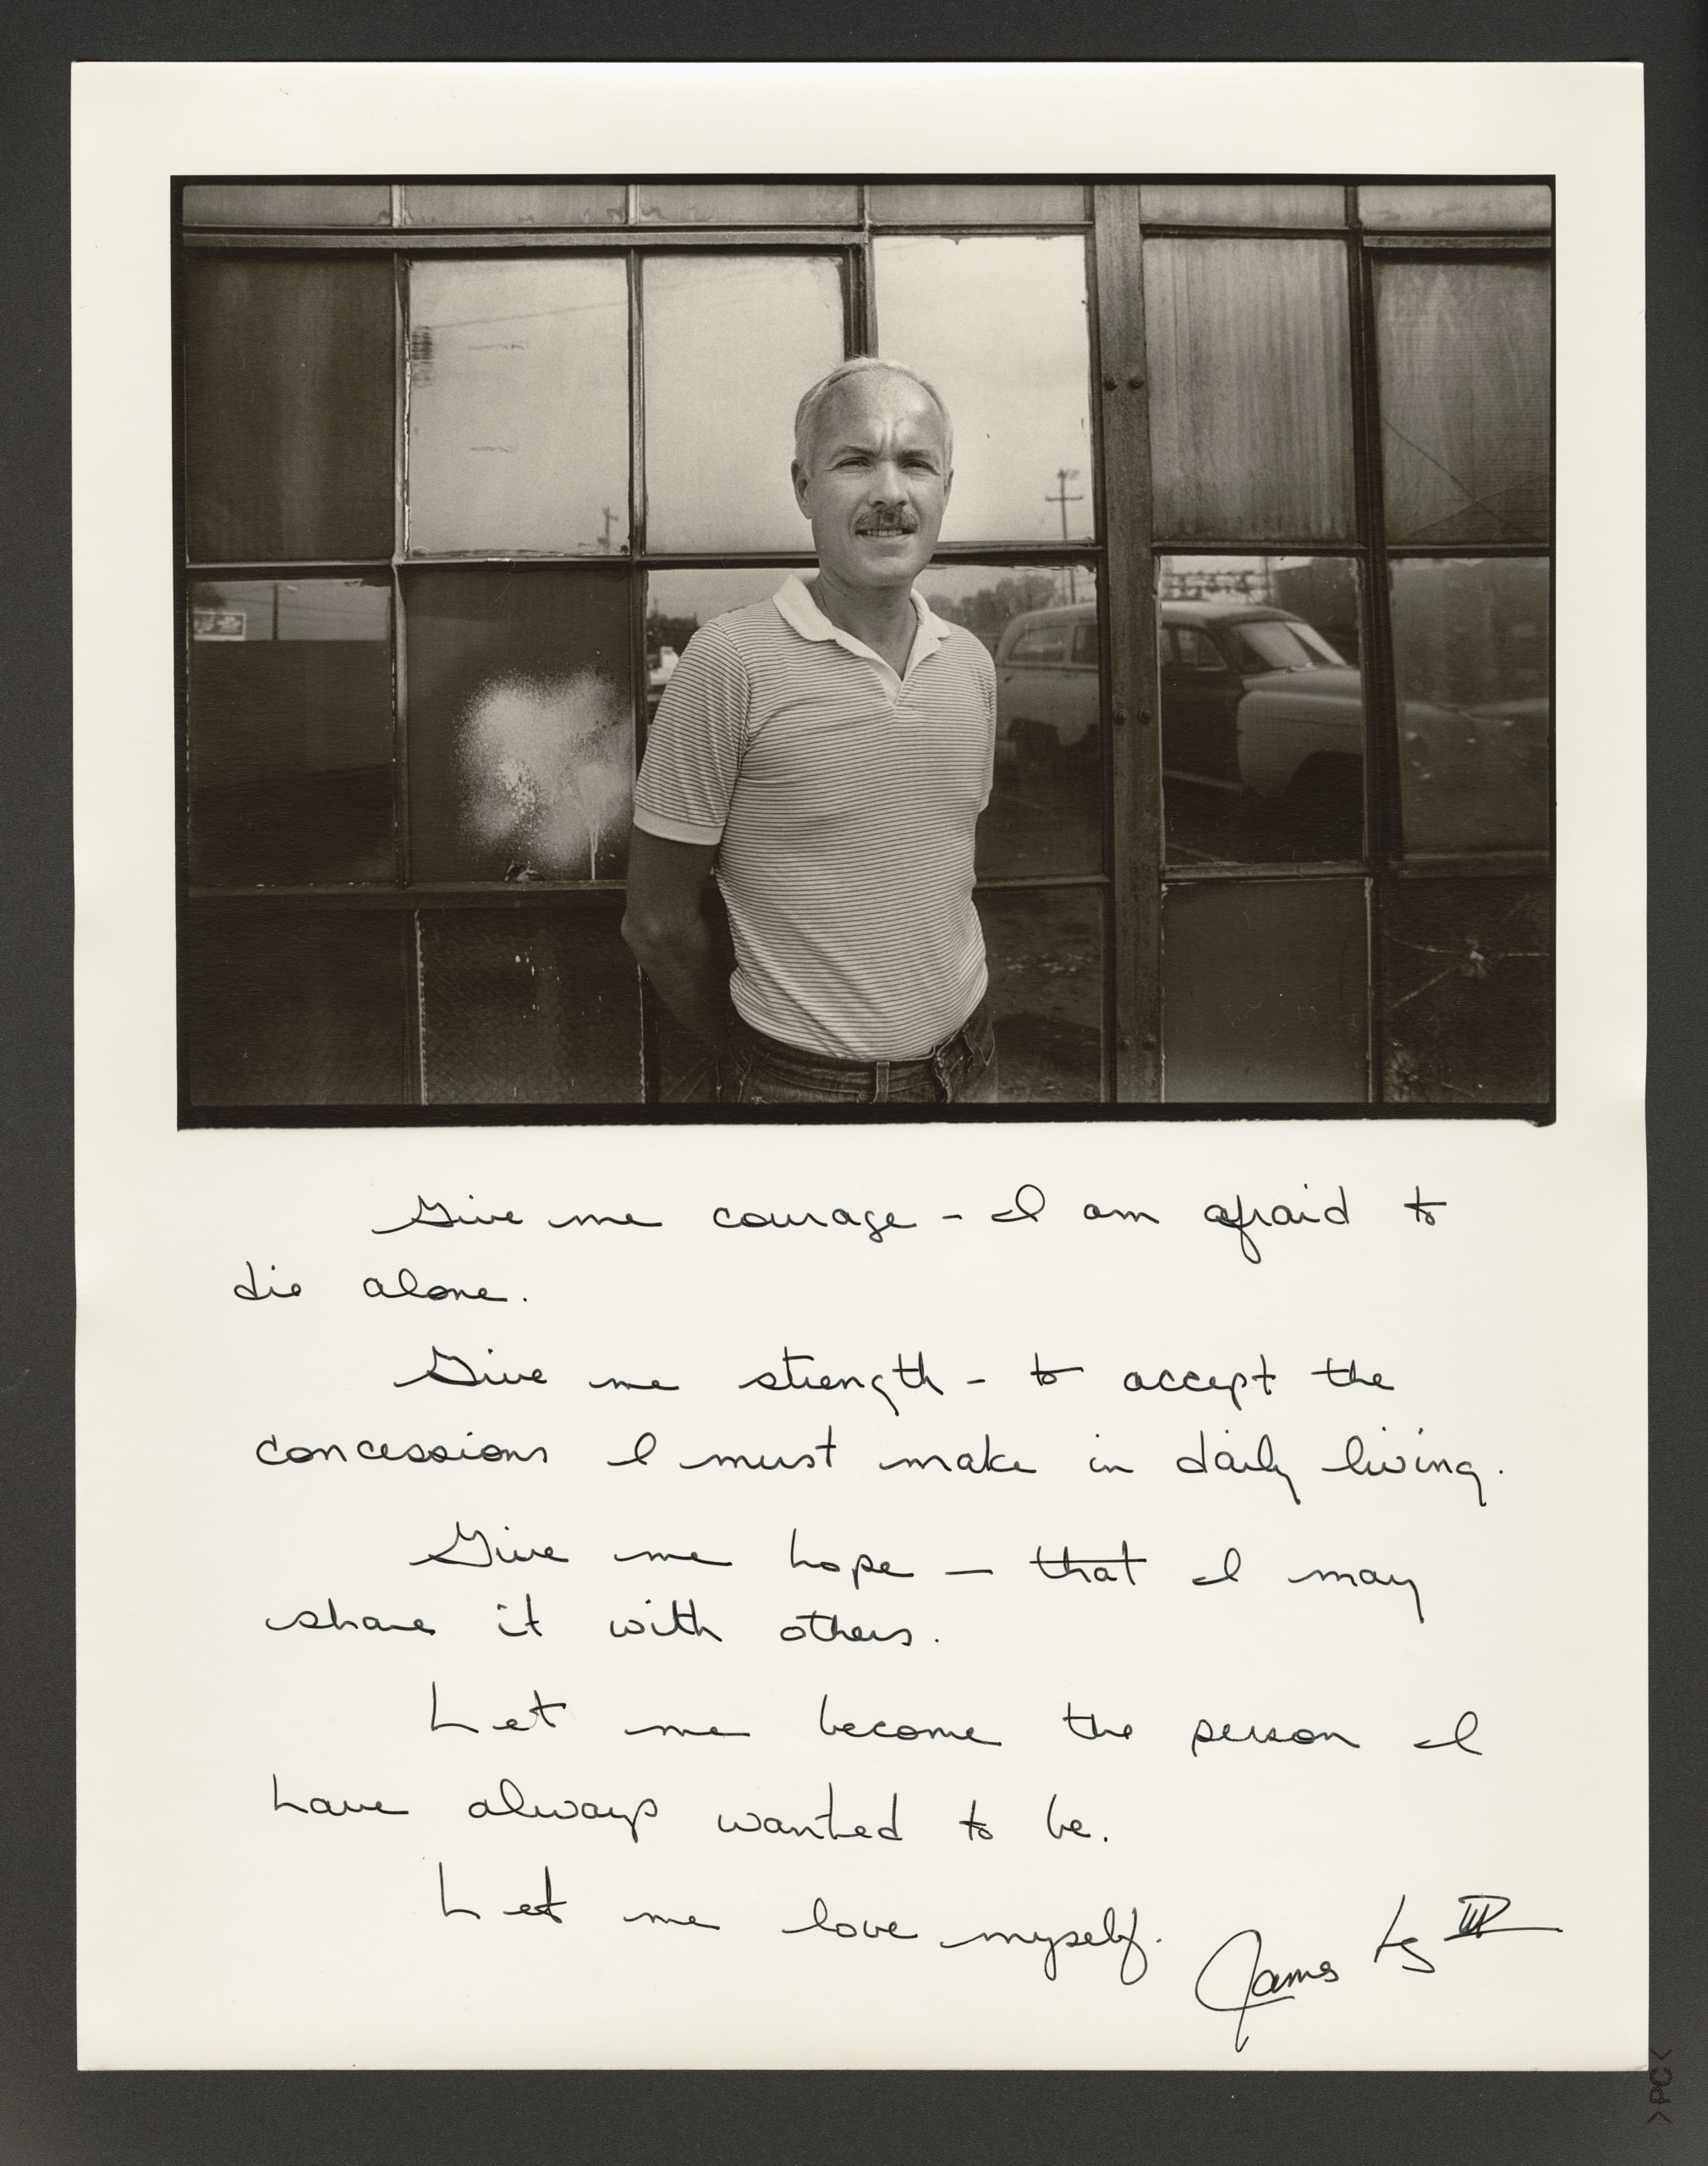 Give me courage - I am afraid to
die alone.
Give me strength - to accept the
concessions I must make in daily living.
Give me hope — that I may
share it with others.
Let me become the person I
have always wanted to be.
Let me love myself.
James III
>PC<